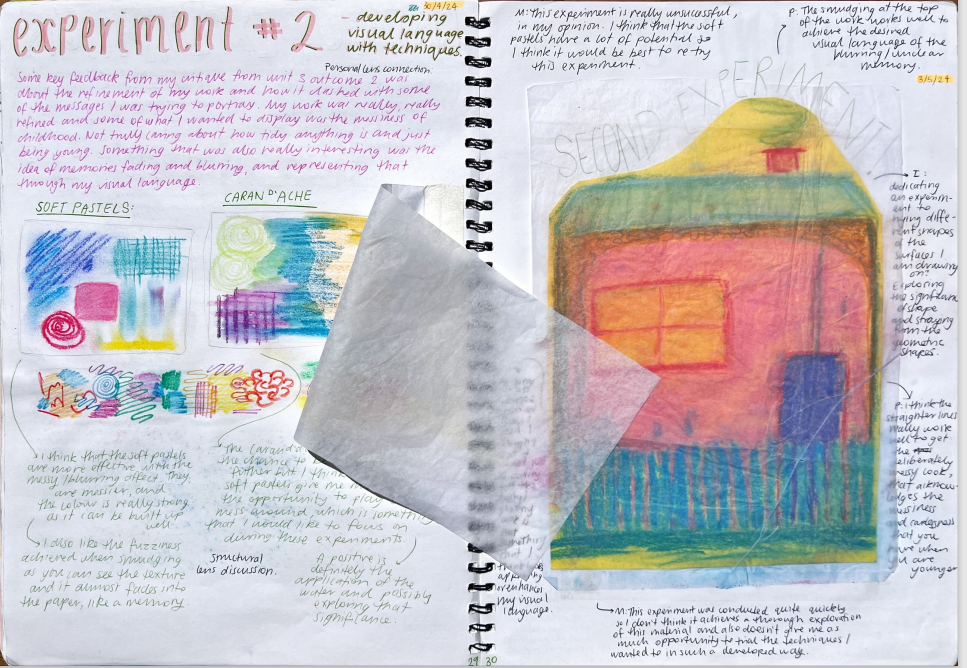 experiment # 2
30/4/24
- developing
visual language
with techniques.
Personal lens connection.
Some key feedback from my
from unit 3 outcome 2 was
about the refinement of my work and how it clashed with some
of the messages I was trying to portray. My work was really, really
refined and some of what I wanted to display was the messiness of
childhood. Not truly caring about how tidy anything is and just
being young. Something that was also really interesting was the
idea of memories fading and blurring, and representing that
through my visual language.
SOFT PASTELS:
CARAN D'ACHE
I think that the soft pastels
are more effective with the
messy/blurring affect. They
are messier, and
the colour is really strong
as it can be built up
well.
I also like the fuzziness
achieved when smudging
as you can see the texture
and it almost fades into
the paper, like a memory.
The Caran d'a
the chance to
but I think
soft pastels give me
the opportunity to play
mess around, which is something
that I would like to focus on
during these experiments.
Structural
lens discussion.
A positive is
definitely the
application of the
water and possibly
exploring that
significance.
29
M: This experiment is really unsuccessful,
in my opinion. I think that the soft
pastels have a lot of potential so
I think it would be best to re-try
this experiment.
P: The smudging at the top
of the work works well to
achieve the desired
visual language of the
blurring/unclear
memory.
3/5/24
SECOND EXPERIMENT
I:
dedicating
an experim-
ent to
trying diffe-
rent shapes
of the
surfaces I
am drawing
on.
Exploring
the significance
of shape
and straying
from the
geometric
shapes.
P: I think the
straighter lines
really work
well to get
the
deliberately
messy look,
that acknow-
ledges the
messiness
and carelessness
that you
have when
you are
younger
enhances
my visual
language.
M: This experiment was conducted quite quickly
so I don't think it achieves a thorough exploration
of this material and also doesn't give me as
much opportunity to trial the techniques I
wanted to in such a developed way.
30